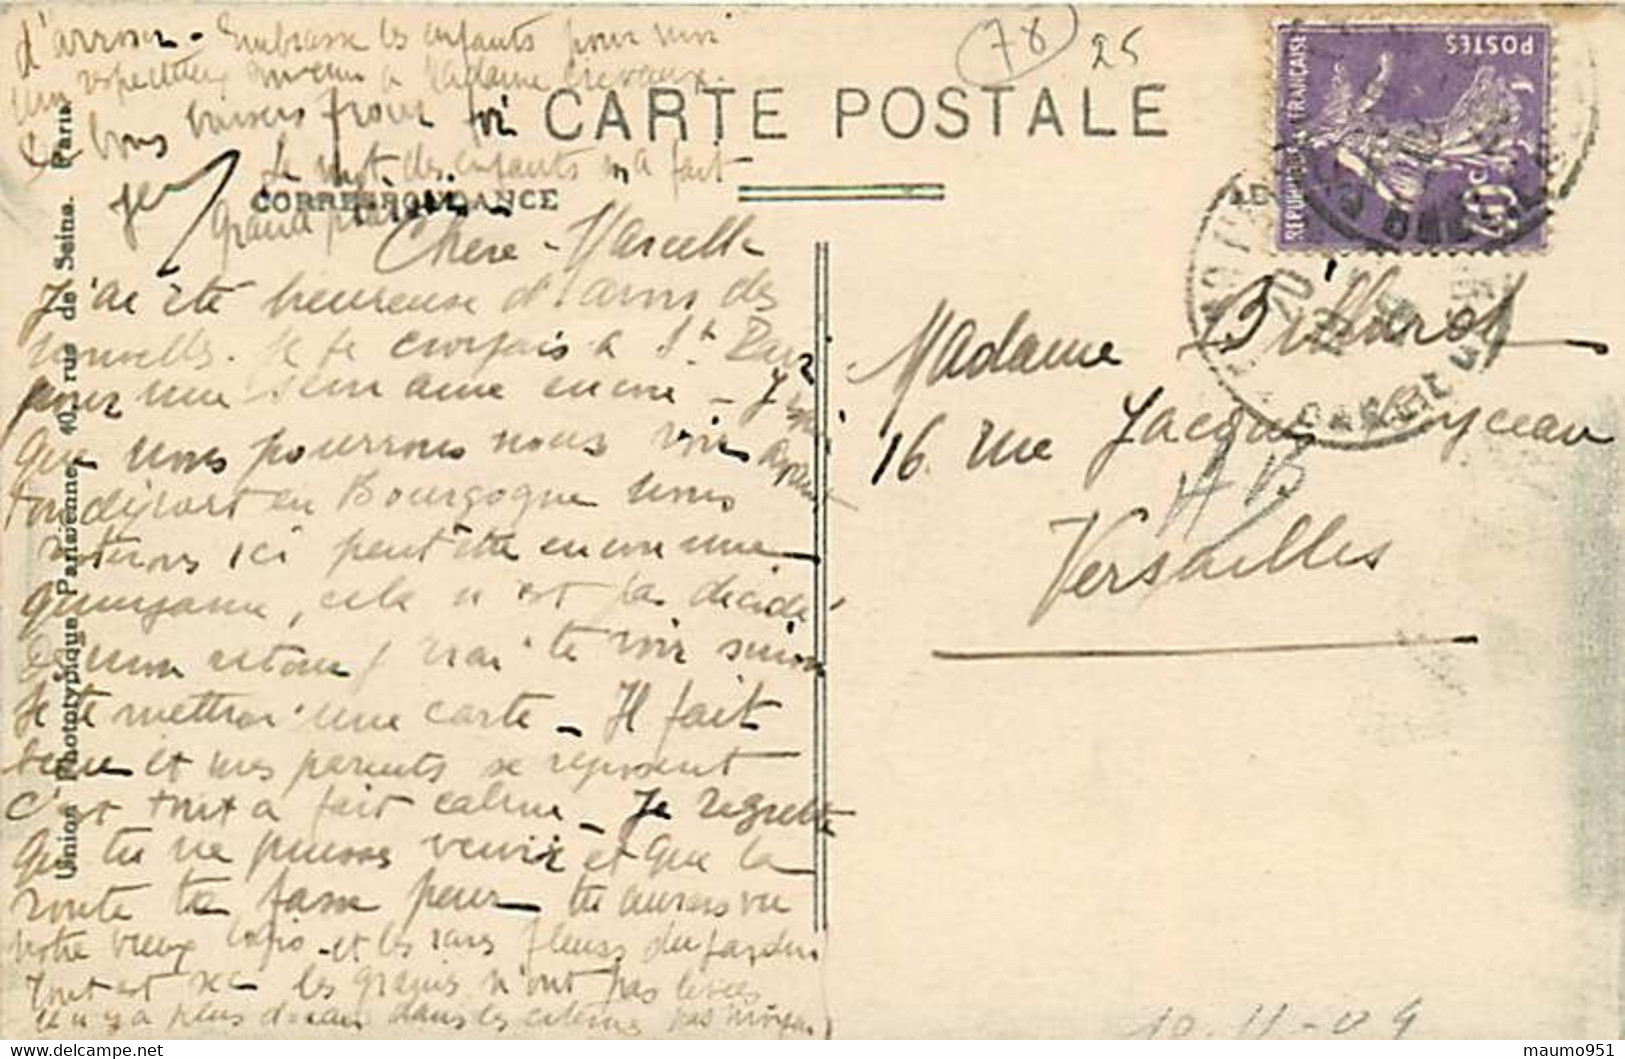 d'arroser - Embrasse les enfants pour moi
respectueux à Madame
bons baisers pour toi
Le mot des enfants m'a fait
grand plaisir
CARTE POSTALE
CORRESPONDANCE
Chère Marcelle
J'ai été heureuse d'avoir des
nouvelles. Je te croyais à St
pour une semaine encore - J'espère
que nous pourrons nous voir avant
ton départ en Bourgogne nous
resterons ici peut être encore une
quinzaine, cela n'est pas décidé
Dès mon retour j'irai te voir sinon
Je te mettrai une carte - Il fait
beau et mes parents se reposent
c'est tout à fait calme - Je regrette
que tu ne puisses venir et que la
route te fasse peur - tu aurais vu
notre vieux logis - et les rares fleurs du jardin
Tout est sec les graines n'ont pas levées
il n'y a plus d'eau dans les citernes pas moyen
Union Phototypique Parisienne, 10, rue de Seine. Paris.
78
25
POSTES
REPUBLIQUE FRANÇAISE
40c
Madame Billard
16 rue Jacques Boyceau
Versailles
AB
10-11-09
maumo951